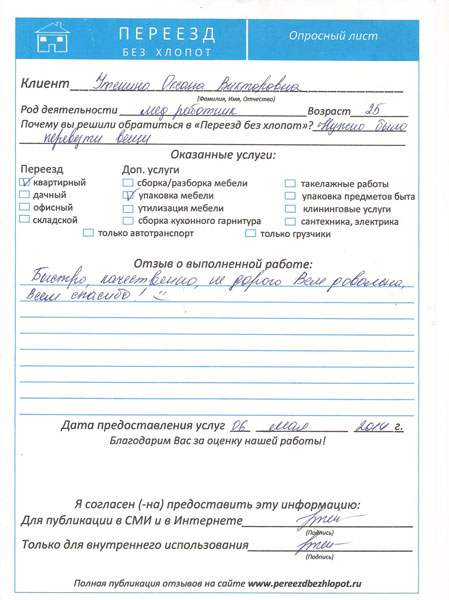 ПЕРЕЕЗД
БЕЗ ХЛОПОТ
Опросный лист
Клиент Утешина Оксана Викторовна
(Фамилия, Имя, Отчество)
Род деятельности мед работник Возраст 25
Почему вы решили обратиться в «Переезд без хлопот»? Нужно было
перевезти вещи
Оказанные услуги:
Переезд Доп. услуги
квартирный сборка/разборка мебели такелажные работы
дачный упаковка мебели упаковка предметов быта
офисный утилизация мебели клининговые услуги
складской сборка кухонного гарнитура сантехника, электрика
только автотранспорт только грузчики
Отзыв о выполненной работе:
Быстро, качественно, не дорого Всем довольна,
Всем спасибо!
Дата предоставления услуг 06 мая 2014 г.
Благодарим Вас за оценку нашей работы!
Я согласен (-на) предоставить эту информацию:
Для публикации в СМИ и в Интернете
(Подпись)
Только для внутреннего использования
(Подпись)
Полная публикация отзывов на сайте www.pereezdbezhlopot.ru